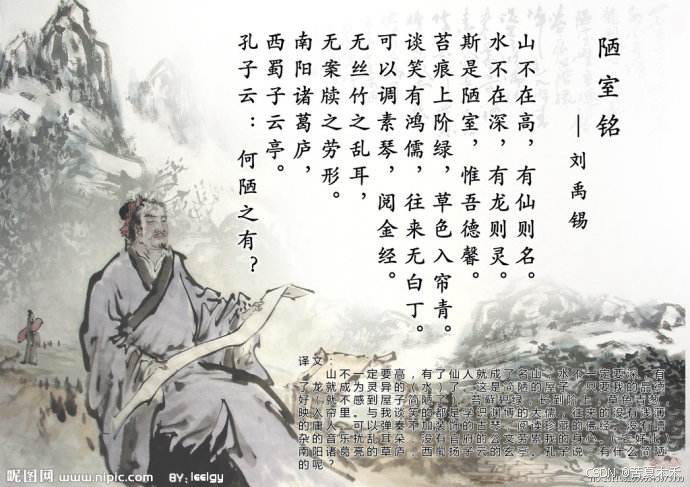 陋室铭
—刘禹锡
山不在高，有仙则名。
水不在深，有龙则灵。
斯是陋室，惟吾德馨。
苔痕上阶绿，草色入帘青。
谈笑有鸿儒，往来无白丁。
可以调素琴，阅金经。
无丝竹之乱耳，
无案牍之劳形。
南阳诸葛庐，
西蜀子云亭。
孔子云：何陋之有？
译文：
山不一定要高，有了仙人就成了名山。水不一定要深，有
了龙就成为灵异的（水）了。这是简陋的屋子，只要我的品德
好（就不感到屋子简陋了）。苔藓碧绿，长到阶上，草色青葱，
映入帘里。与我谈笑的都是学识渊博的大儒，往来的没有浅薄
的人，可以弹奏不加装饰的古琴，阅读珍藏的佛经。没有嘈
杂的音乐扰乱耳朵，没有官府的公文劳累我的身心。
南阳诸葛亮的草庐，西蜀扬子云的玄亭。孔子说，有什么简陋
的呢？
昵图网 www.nipic.com
BY: leelgy
CSDN @苦夏木禾